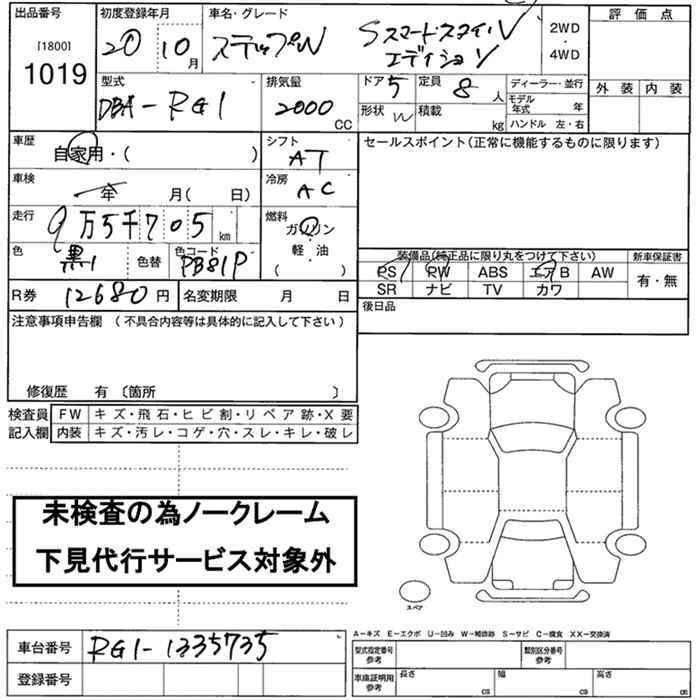 出品番号 初度登録年月 車名・グレード 評価点
[1800] 20 10月 ステップW Sスマートスタイル 2WD
1019 エディション ・4WD
外装 内装
型式 排気量 ドア 5 定員 8人 ディーラー・並行
DBA-RG1 2000CC 形状 W 積載 kg モデル年式 年
ハンドル 左・右
車歴 自家用・( ) シフト AT セールスポイント(正常に機能するものに限ります)
車検 年 月( 日) 冷房 AC
走行 9万5千705km 燃料 ガソリン
軽・油
( )
色 黒 色替 色コード PB81P
装備品(純正品に限り丸をつけて下さい) 新車保証書
PS PW ABS エアB AW 有・無
SR ナビ TV カワ
R券 12680円 名変期限 月 日
後日品
注意事項申告欄 (不具合内容等は具体的に記入して下さい)
修復歴 有 〔箇所 〕
検査員 FW キズ・飛石・ヒビ割・リペア跡・X要
記入欄 内装 キズ・汚レ・コゲ・穴・スレ・キレ・破レ
未検査の為ノークレーム
下見代行サービス対象外
スペア
A-キズ E-エクボ U-凹み W-補修跡 S-サビ C-腐食 XX-交換済
車台番号 RG1-1335735
登録番号
型式指定番号 参考 類別区分番号 参考
車庫証明用 参考 長さ cm 幅 cm 高さ cm